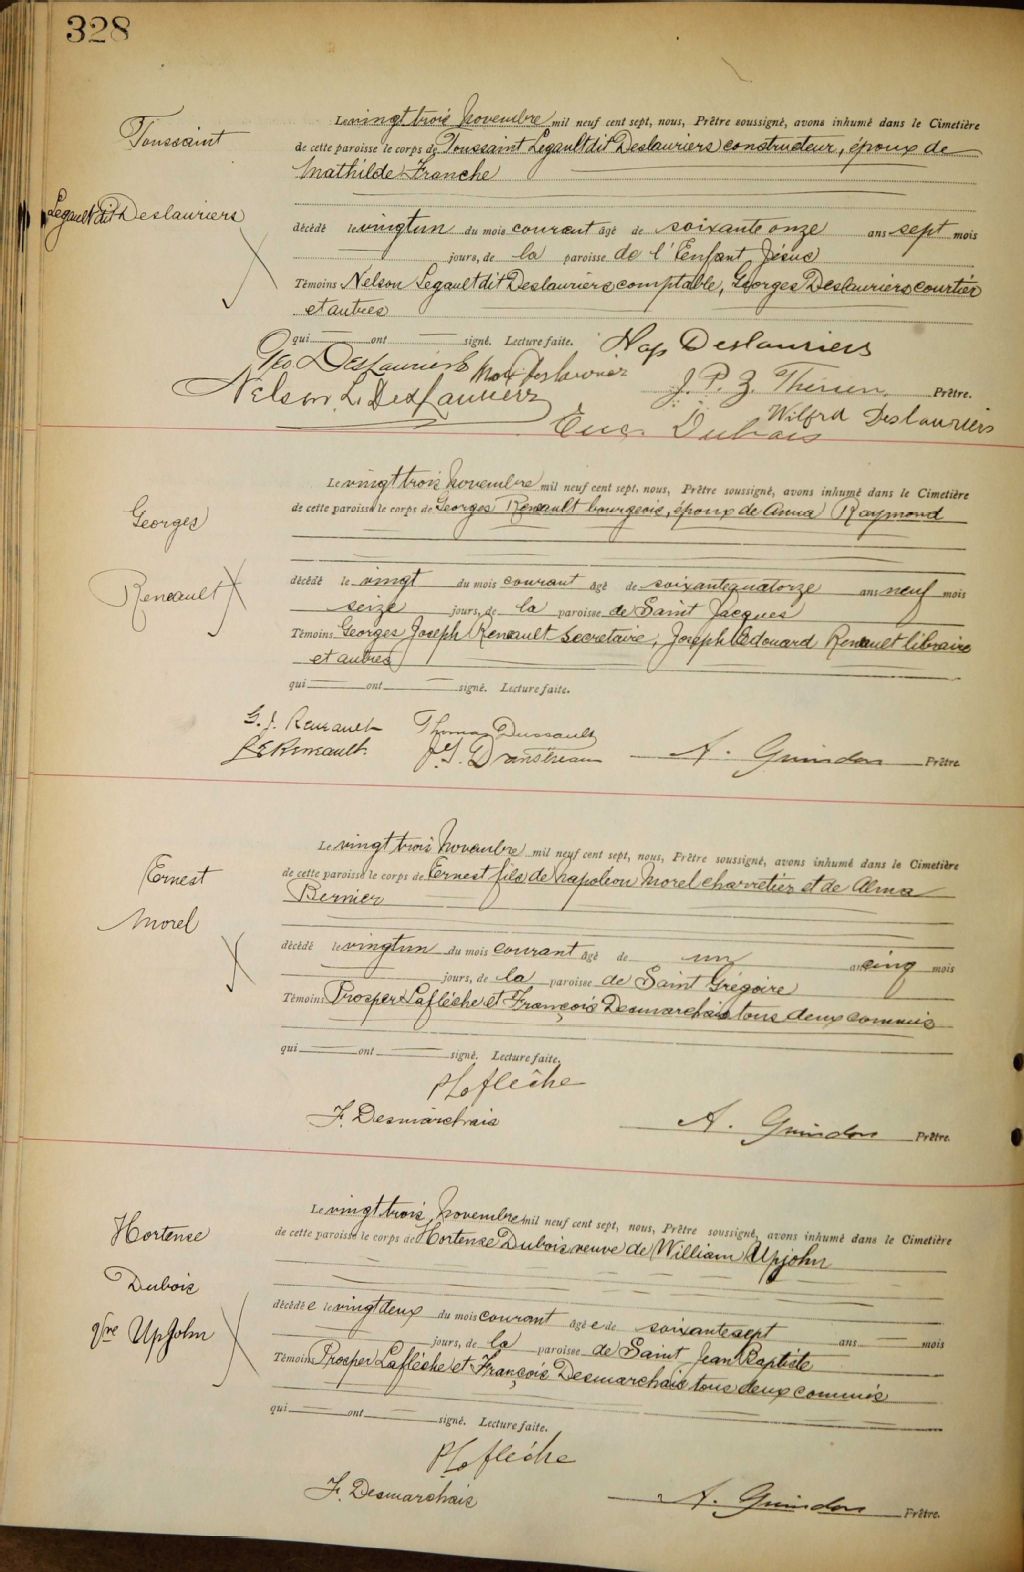 328
Toussaint
Legault dit Deslauriers
Le vingt trois Novembre mil neuf cent sept, nous, Prêtre soussigné, avons inhumé dans le Cimetière
de cette paroisse le corps de Toussaint Legault dit Deslauriers constructeur, époux de
Mathilde Franche
décédé le vingtun du mois courant âgé de soixante onze ans sept mois
jours, de la paroisse de l'Enfant Jésus
Témoins Nelson Legault dit Deslauriers comptable, Georges Deslauriers courtier
et autres
qui ont signé. Lecture faite. Nap Deslauriers
Geo Deslauriers
Nelson L. DesLauriers J. P. Z. Thérien Prêtre.
Eug. Dubois Wilfrd Deslauriers
Georges
Reneault
Le vingt trois Novembre mil neuf cent sept, nous, Prêtre soussigné, avons inhumé dans le Cimetière
de cette paroisse le corps de Georges Reneault bourgeois, époux de Anna Raymond
décédé le vingt du mois courant âgé de soixantequatorze ans neuf mois
seize jours, de la paroisse de Saint Jacques
Témoins Georges Joseph Reneault secretaire, Joseph Edouard Reneault libraire
et autres
qui ont signé. Lecture faite.
G. J. Renault Thomas Dussault
J E Reneault J. G. Dansereau A. Guindon Prêtre
Ernest
Morel
Le vingt trois Novembre mil neuf cent sept, nous, Prêtre soussigné, avons inhumé dans le Cimetière
de cette paroisse le corps de Ernest fils de Napoléon Morel charretier et de Alma
Bernier
décédé le vingtun du mois courant âgé de un an cinq mois
jours, de la paroisse de Saint Grégoire
Témoins Prosper Laflèche et François Desmarchais tous deux commis
qui ont signé. Lecture faite.
P Laflèche
F. Desmarchais A. Guindon Prêtre.
Hortense
Dubois
Vve UpJohn
Le vingt trois Novembre mil neuf cent sept, nous, Prêtre soussigné, avons inhumé dans le Cimetière
de cette paroisse le corps de Hortense Dubois veuve de William Upjohn
décédée le vingtdeux du mois courant âgée de soixantesept ans mois
jours, de la paroisse de Saint Jean Baptiste
Témoins Prosper Laflèche et François Desmarchais tous deux commis
qui ont signé. Lecture faite.
P Laflèche
F. Desmarchais A. Guindon Prêtre.